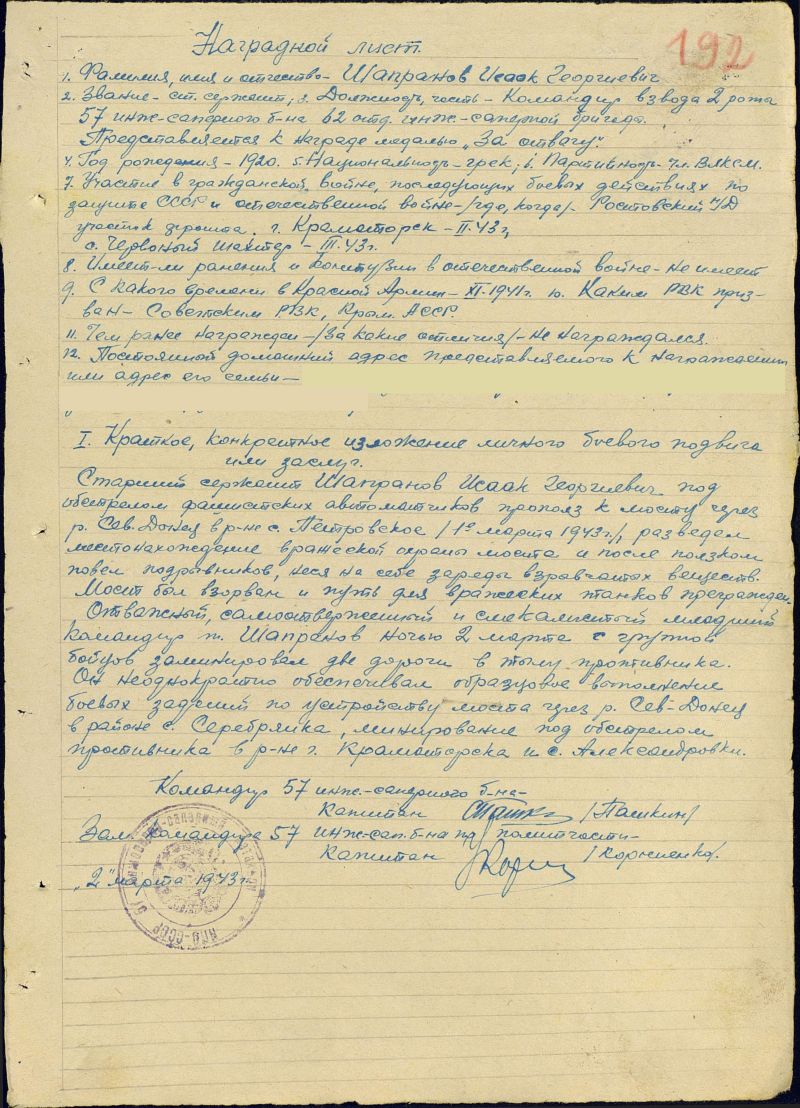 Наградной лист.
192
1. Фамилия, имя и отчество - Шапранов Исаак Георгиевич
2. Звание - ст. сержант; 3. Должность, часть - Командир взвода 2 роты
57 инж-саперного б-на 62 отд. инж.-саперной бригады.
Представляется к награде медалью „За отвагу".
4. Год рождения - 1920. 5. Национальность - грек; 6. Партийность - чл. ВЛКСМ.
7. Участие в гражданской войне, последующих боевых действиях по
защите СССР и отечественной войне - /где, когда/ - Ростовский
участок фронта. г. Краматорск - II.43 г,
с. Червоный шахтер - III.43 г.
8. Имеет-ли ранения и контузии в отечественной войне - не имеет
9. С какого времени в Красной Армии - XI.1941 г. 10. Каким РВК приз-
ван - Советским РВК, Крым. АССР.
11. Чем ранее награжден - /за какие отличия/ - не награждался.
12. Постоянной домашний адрес представляемого к награждению
или адрес его семьи -
I. Краткое, конкретное изложение личного боевого подвига
или заслуг.
Старший сержант Шапранов Исаак Георгиевич под
обстрелом фашистских автоматчиков прополз к мосту через
р. Сев. Донец в р-не с. Петровское /1го марта 1943 г./, разведал
местонахождение вражеской охраны моста и после ползком
повел подрывников, неся на себе заряды взрывчатых веществ.
Мост был взорван и путь для вражеских танков прегражден.
Отважный, самоотверженный и смекалистый младший
командир т. Шапранов ночью 2 марта с группой
бойцов заминировал две дороги в тылу противника.
Он неоднократно обеспечивал образцовое выполнение
боевых заданий по устройству моста через р. Сев-Донец
в районе с. Серебрянка, минирование под обстрелом
противника в р-не г. Краматорска и с. Александровки.
Командир 57 инж.-саперного б-на -
Капитан /Пашкин/
Зам. Командира 57 инж-сап. б-на по политчасти -
Капитан /Корниенко/.
„2" марта 1943 г.
НКО-СССР